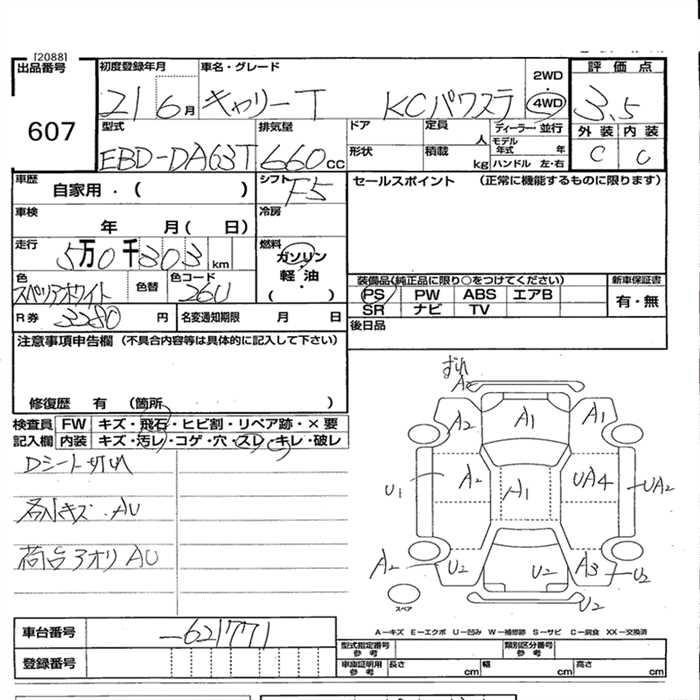 [2088]
出品番号 初度登録年月 車名・グレード 2WD ・ 4WD 評価点
607
21 6月 キャリーT KCパワステ 3.5
型式 排気量 ドア 定員 人 ディーラー・並行 外装 内装
EBD-DA63T 660cc 形状 積載 kg モデル年式 年 ハンドル 左・右 C C
車歴 自家用・( ) シフト F5 セールスポイント (正常に機能するものに限ります)
車検 年 月( 日) 冷房
走行 5万0千303km 燃料 ガソリン・軽油 ( )
色 スペリアホワイト 色替 色コード 26U
装備品(純正品に限り○をつけてください) 新車保証書
PS PW ABS エアB 有・無
SR ナビ TV
R券 3280円 名変通知期限 月 日 後日品
注意事項申告欄 (不具合内容等は具体的に記入して下さい)
修復歴 有 (箇所 )
検査員 FW キズ・飛石・ヒビ割・リペア跡・×要
記入欄 内装 キズ・汚レ・コゲ・穴・スレ・キレ・破レ
Dシート切れ
キズ・AU
荷台アオリAU
ずれ
A2
A2 A1 A1
U1 A2 A1 UA4 UA2
A2 U2 U2 A3 U2
U2
スペア
A-キズ E-エクボ U-凹み W-補修跡 S-サビ C-腐食 XX-交換済
車台番号 -621771
型式指定番号 参考 類別区分番号 参考
登録番号
車庫証明用 参考 長さ cm 幅 cm 高さ cm